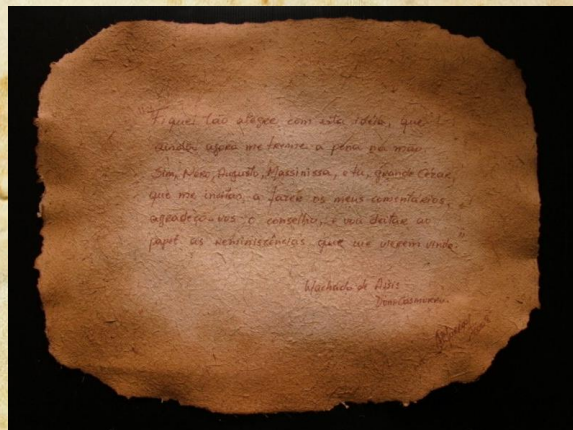 "Fiquei tão alegre com esta idéia, que
ainda agora me treme a pena na mão.
Sim, Nero, Augusto, Massinissa, e tu, grande César,
que me incitas a fazer os meus comentários,
agradeço-vos o conselho, e vou deitar ao
papel as reminiscências que me vierem vindo."
Machado de Assis
Dom Casmurro.